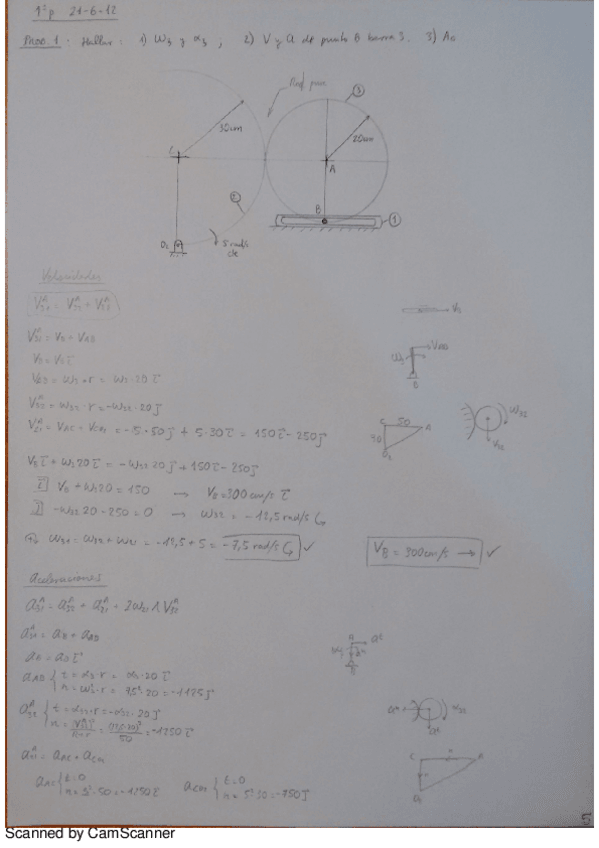 1ºp 21-6-12
Prob 1. Hallar: 1) ω3 y α3 ; 2) V y a de punto B barra 3. 3) A0
Rod. pura
3
30cm
20cm
C
A
2
B
1
O2
5 rad/s
cte
Velocidades
V31^A = V32^A + V21^A
V31^A = VB + VAB
VB = VB i
VAB = ω3 · r = ω3 · 20 i
V32^A = ω32 · r = -ω32 · 20 j
V21^A = VAC - VCO2 = -5 · 50 j + 5 · 30 i = 150 i - 250 j
VB i + ω3 20 i = -ω32 20 j + 150 i - 250 j
i VB + ω3 20 = 150 → VB = 300 cm/s i
j -ω32 20 - 250 = 0 → ω32 = -12,5 rad/s
ω31 = ω32 + ω21 = -12,5 + 5 = -7,5 rad/s ✓
VB = 300 cm/s → ✓
VB
VAB
ω3
B
C 50 A
30
O2
ω32
V32
Aceleraciones
a31^A = a32^A + a21^A + 2ω21 ∧ V32^A
a31^A = aB + aAB
aB = aB i
aAB { t = α3 · r = α3 · 20 i
n = ω3² · r = 7,5² · 20 = -1125 j
a32^A { t = α32 · r = -α32 · 20 j
50 = -1250 i
a21^A = aAC + aCO2
aAC { t = 0
n = 5² · 50 = -1250 i
aCO2 { t = 0
n = 5² · 30 = -750 j
A
B
α32
C
A
O2
5
Scanned by CamScanner